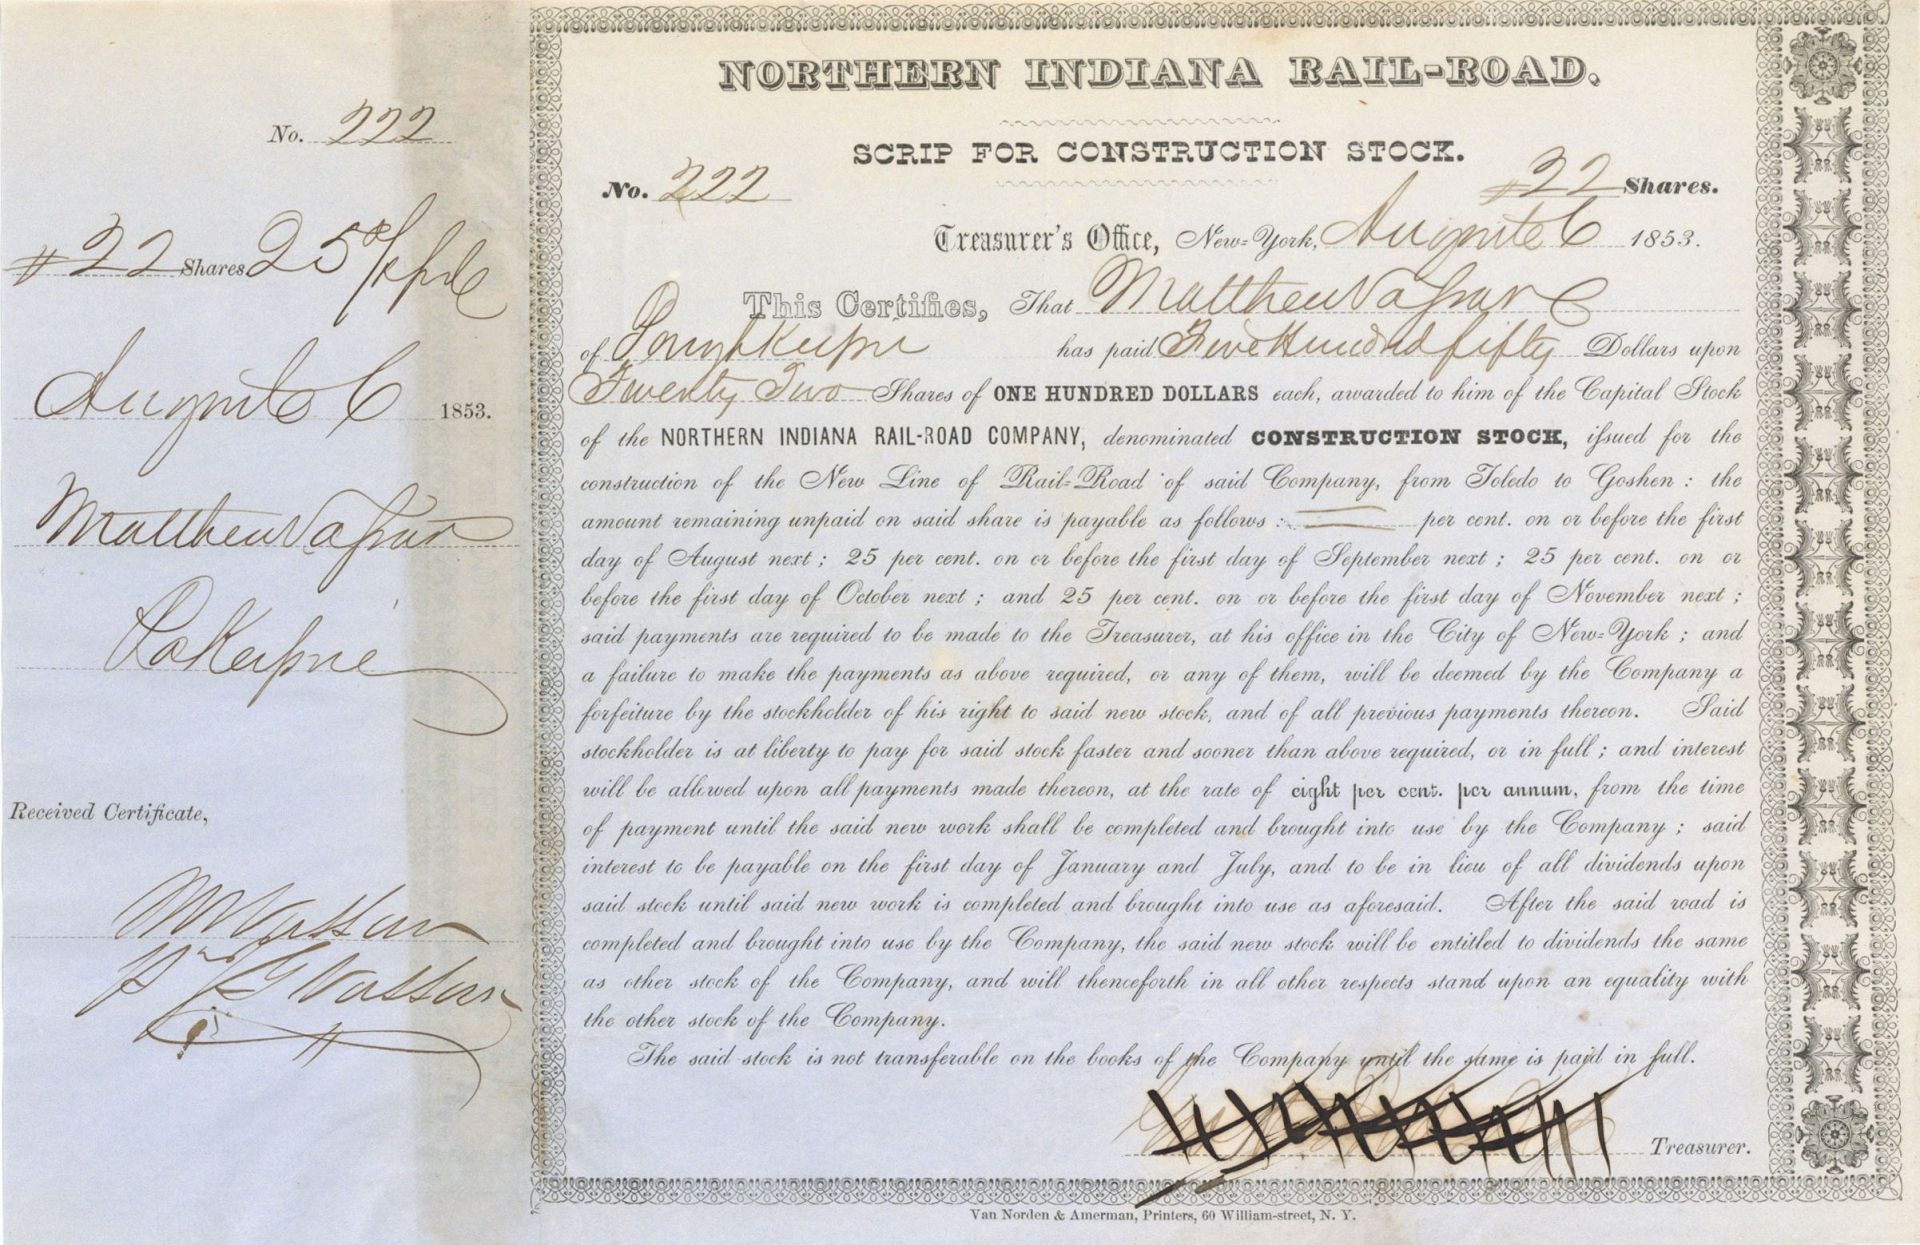 No. 222
# 22 Shares 25 %
August 6 1853.
Matthew Vassar
Pokeepsie
Received Certificate,
M Vassar
Pr J G Vassar
NORTHERN INDIANA RAIL-ROAD.
SCRIP FOR CONSTRUCTION STOCK.
No. 222 #22 Shares.
Treasurer's Office, New-York, August 6 1853.
This Certifies, That Matthew Vassar
of Poughkeepsie has paid Five Hundred fifty Dollars upon
Twenty Two Shares of ONE HUNDRED DOLLARS each, awarded to him of the Capital Stock
of the NORTHERN INDIANA RAIL-ROAD COMPANY, denominated CONSTRUCTION STOCK, issued for the
construction of the New Line of Rail-Road of said Company, from Toledo to Goshen : the
amount remaining unpaid on said share is payable as follows : per cent. on or before the first
day of August next ; 25 per cent. on or before the first day of September next ; 25 per cent. on or
before the first day of October next ; and 25 per cent. on or before the first day of November next ;
said payments are required to be made to the Treasurer, at his office in the City of New-York ; and
a failure to make the payments as above required, or any of them, will be deemed by the Company a
forfeiture by the stockholder of his right to said new stock, and of all previous payments thereon. Said
stockholder is at liberty to pay for said stock faster and sooner than above required, or in full ; and interest
will be allowed upon all payments made thereon, at the rate of eight per cent. per annum, from the time
of payment until the said new work shall be completed and brought into use by the Company ; said
interest to be payable on the first day of January and July, and to be in lieu of all dividends upon
said stock until said new work is completed and brought into use as aforesaid. After the said road is
completed and brought into use by the Company, the said new stock will be entitled to dividends the same
as other stock of the Company, and will thenceforth in all other respects stand upon an equality with
the other stock of the Company.
The said stock is not transferable on the books of the Company until the same is paid in full.
Treasurer.
Van Norden & Amerman, Printers, 60 William-street, N. Y.